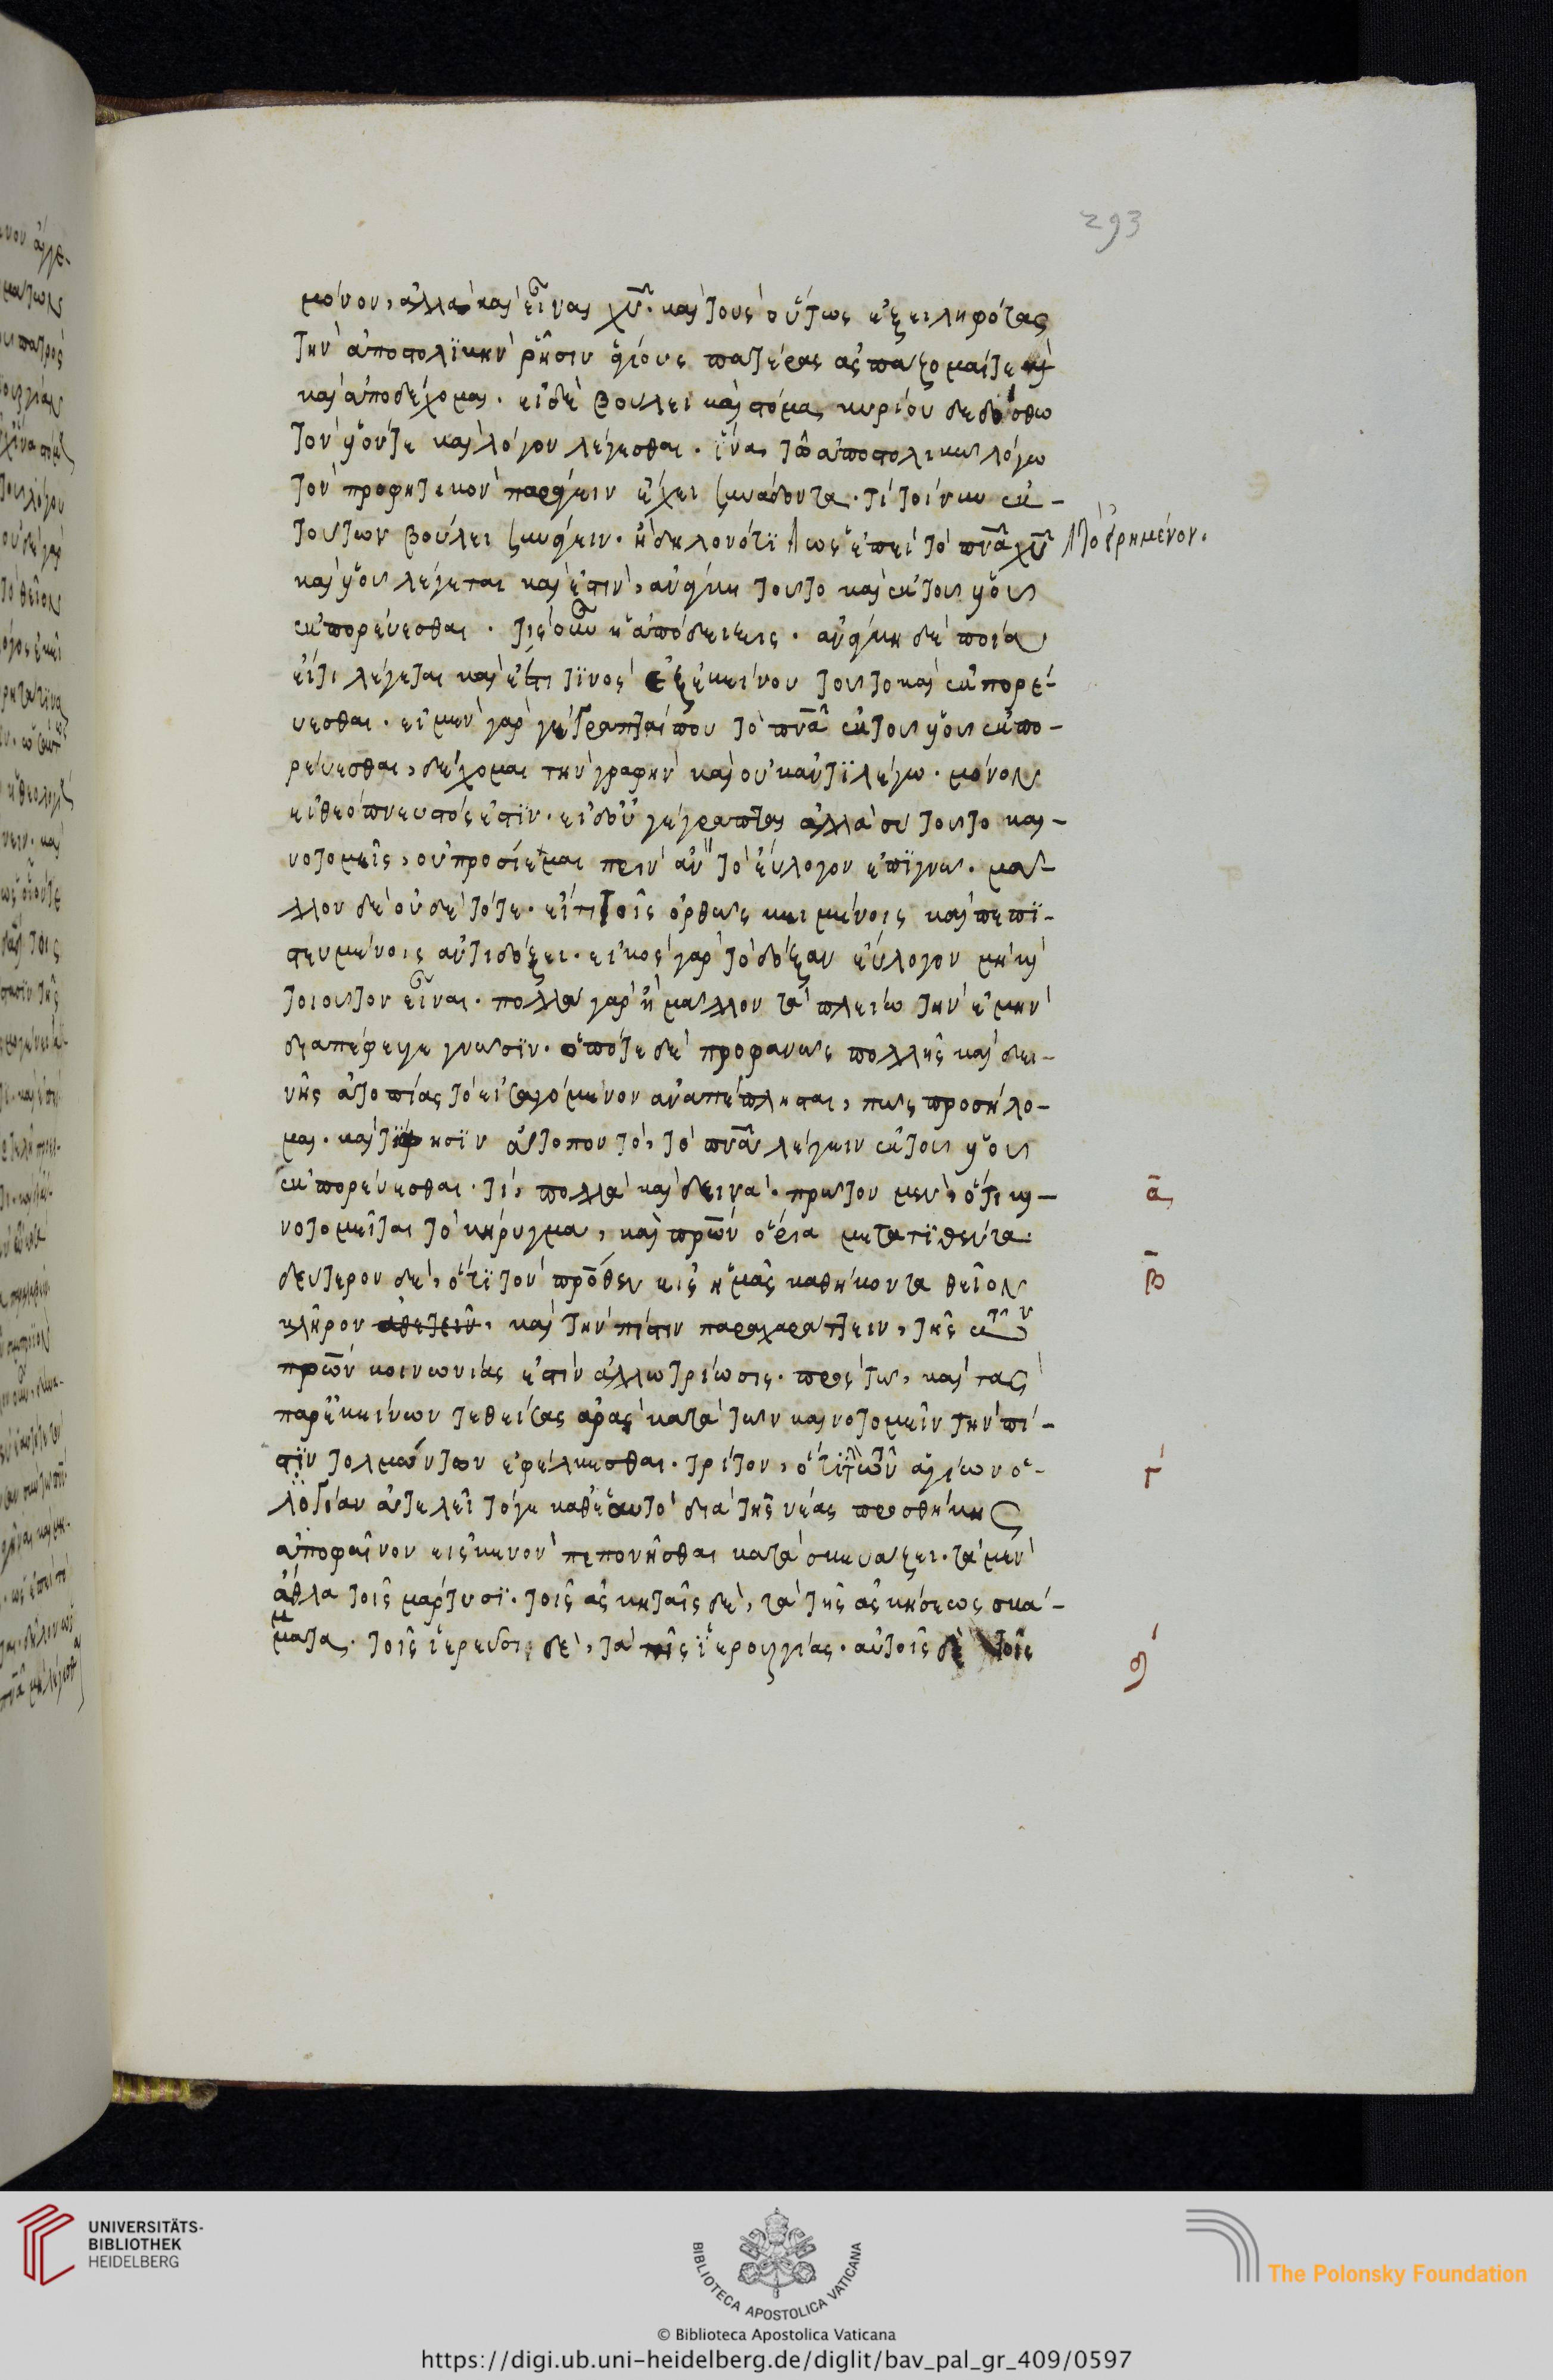 293
μόνον, ἀλλὰ καὶ εἶναι χυ. καὶ τοὺς οὕτως ἐξειληφότας
τὴν ἀποστολϊκὴν ῥῆσιν θείους πατέρας ἀσπάζομαί τε
καὶ ἀποδέχομαι. εἰ δὲ βούλει καὶ στόμα κυρίου δεδόσθω
τὸν υον τε καὶ λόγον λέγεσθαι. ἵνα τῶ ἀποστολικῶ λόγω
τὸν προφητικὸν παράγειν ἔχει συνάδοντα. τί τοίνυν ἐκ-
τούτων βούλει συνάγειν. ἢ δηλονότϊ ὡς ἐπεὶ τὸ πνα χυ
τὸ εἰρημένον.
καὶ υου λέγεται καὶ ἐστὶν, ἀνάγκη τοῦτο καὶ ἐκ τοῦ υου
ἐκπορεύεσθαι. τίς οὖν ἡ ἀπόδειξις. ἀνάγκη δὲ ποία
εἴ τι λέγεται καὶ ἔστι τϊνὸς ἐξ ἐκείνου τοῦτο καὶ ἐκπορεύ-
εσθαι. εἰ μὲν γὰρ γέγραπταί που τὸ πνα ἐκ τοῦ υου ἐκπο-
ρεύεσθαι, δέχομαι τὴν γραφὴν καὶ οὐκ ἀντϊλέγω. μόνον
εἰ θεόπνευστός ἐστϊν. εἰ δ' οὐ γέγραπται ἀλλὰ σὺ τοῦτο και-
νοτομεῖς, οὐ προσίεμαι πρὶν ἂν τὸ εὔλογον ἐπϊγνῶ. μᾶ-
λλον δὲ οὐδὲ τότε. εἴ τι τοῖς ὀρθῶς κειμένοις καὶ πεπϊ-
στευμένοις ἀντιδόξει. εἰκὸς γὰρ τὸ δόξαν εὔλογον μὴ καὶ
τοιοῦτον εἶναι. πολλὰ γὰρ ἢ μᾶλλον τὰ πλείω τὴν ἐμὴν
διαπέφευγε γνῶσϊν. ὁπότε δὲ προφανῶς πολλῆς καὶ δει-
νῆς ἀτοπίας τὸ εἰσαγόμενον ἀναπέπλησται, πῶς προσήσο-
μαι. καὶ τί φησϊν ἄτοπον τὸ, τὸ πνα λέγειν ἐκ τοῦ υου
ἐκπορεύεσθαι. τί, πολλὰ καὶ δεινά. πρῶτον μὲν, ὅτι και-
ᾱ
νοτομεῖται τὸ κήρυγμα, καὶ πρων ὅρια μετατϊθέντα.
δεύτερον δὲ, ὅτϊ τὸν πρόθεν εἰς ἡμᾶς καθήκοντα θεῖον
β̄
κλῆρον ἀθετεῖν. καὶ τὴν πίστιν παραχαράττειν, τῆς
πρων κοινωνίας ἐστὶν ἀλλωτρίωσις. πρός τω, καὶ τὰς
παρ' ἐκείνων τεθείσας ἀρὰς κατὰ τῶν καινοτομεῖν τὴν πί-
στϊν τολμώντων ἐφέλκεσθαι. τρίτον, ὅτϊ τῶν ἁγίων ὁ-
γ
λότητα ἀτελεῖ τό γε καθ' ἑαυτὸ διὰ τῆς νέας προσθήκης
ἀποφαῖνον εἰς κενὸν πεπονῆσθαι κατὰ σκευάζει. τὰ μὲν
ἆθλα τοῖς μάρτυσϊ. τοῖς ἀσκηταῖς δὲ, τὰ τῆς ἀσκήσεως σκά-
μματα. τοῖς ἱερεῦσι δὲ, τὰ τῆς ἱερουργίας. αὐτοῖς δὲ τοῖς
UNIVERSITÄTS-
BIBLIOTHEK
HEIDELBERG
BIBLIOTECA APOSTOLICA VATICANA
The Polonsky Foundation
© Biblioteca Apostolica Vaticana
https://digi.ub.uni-heidelberg.de/diglit/bav_pal_gr_409/0597